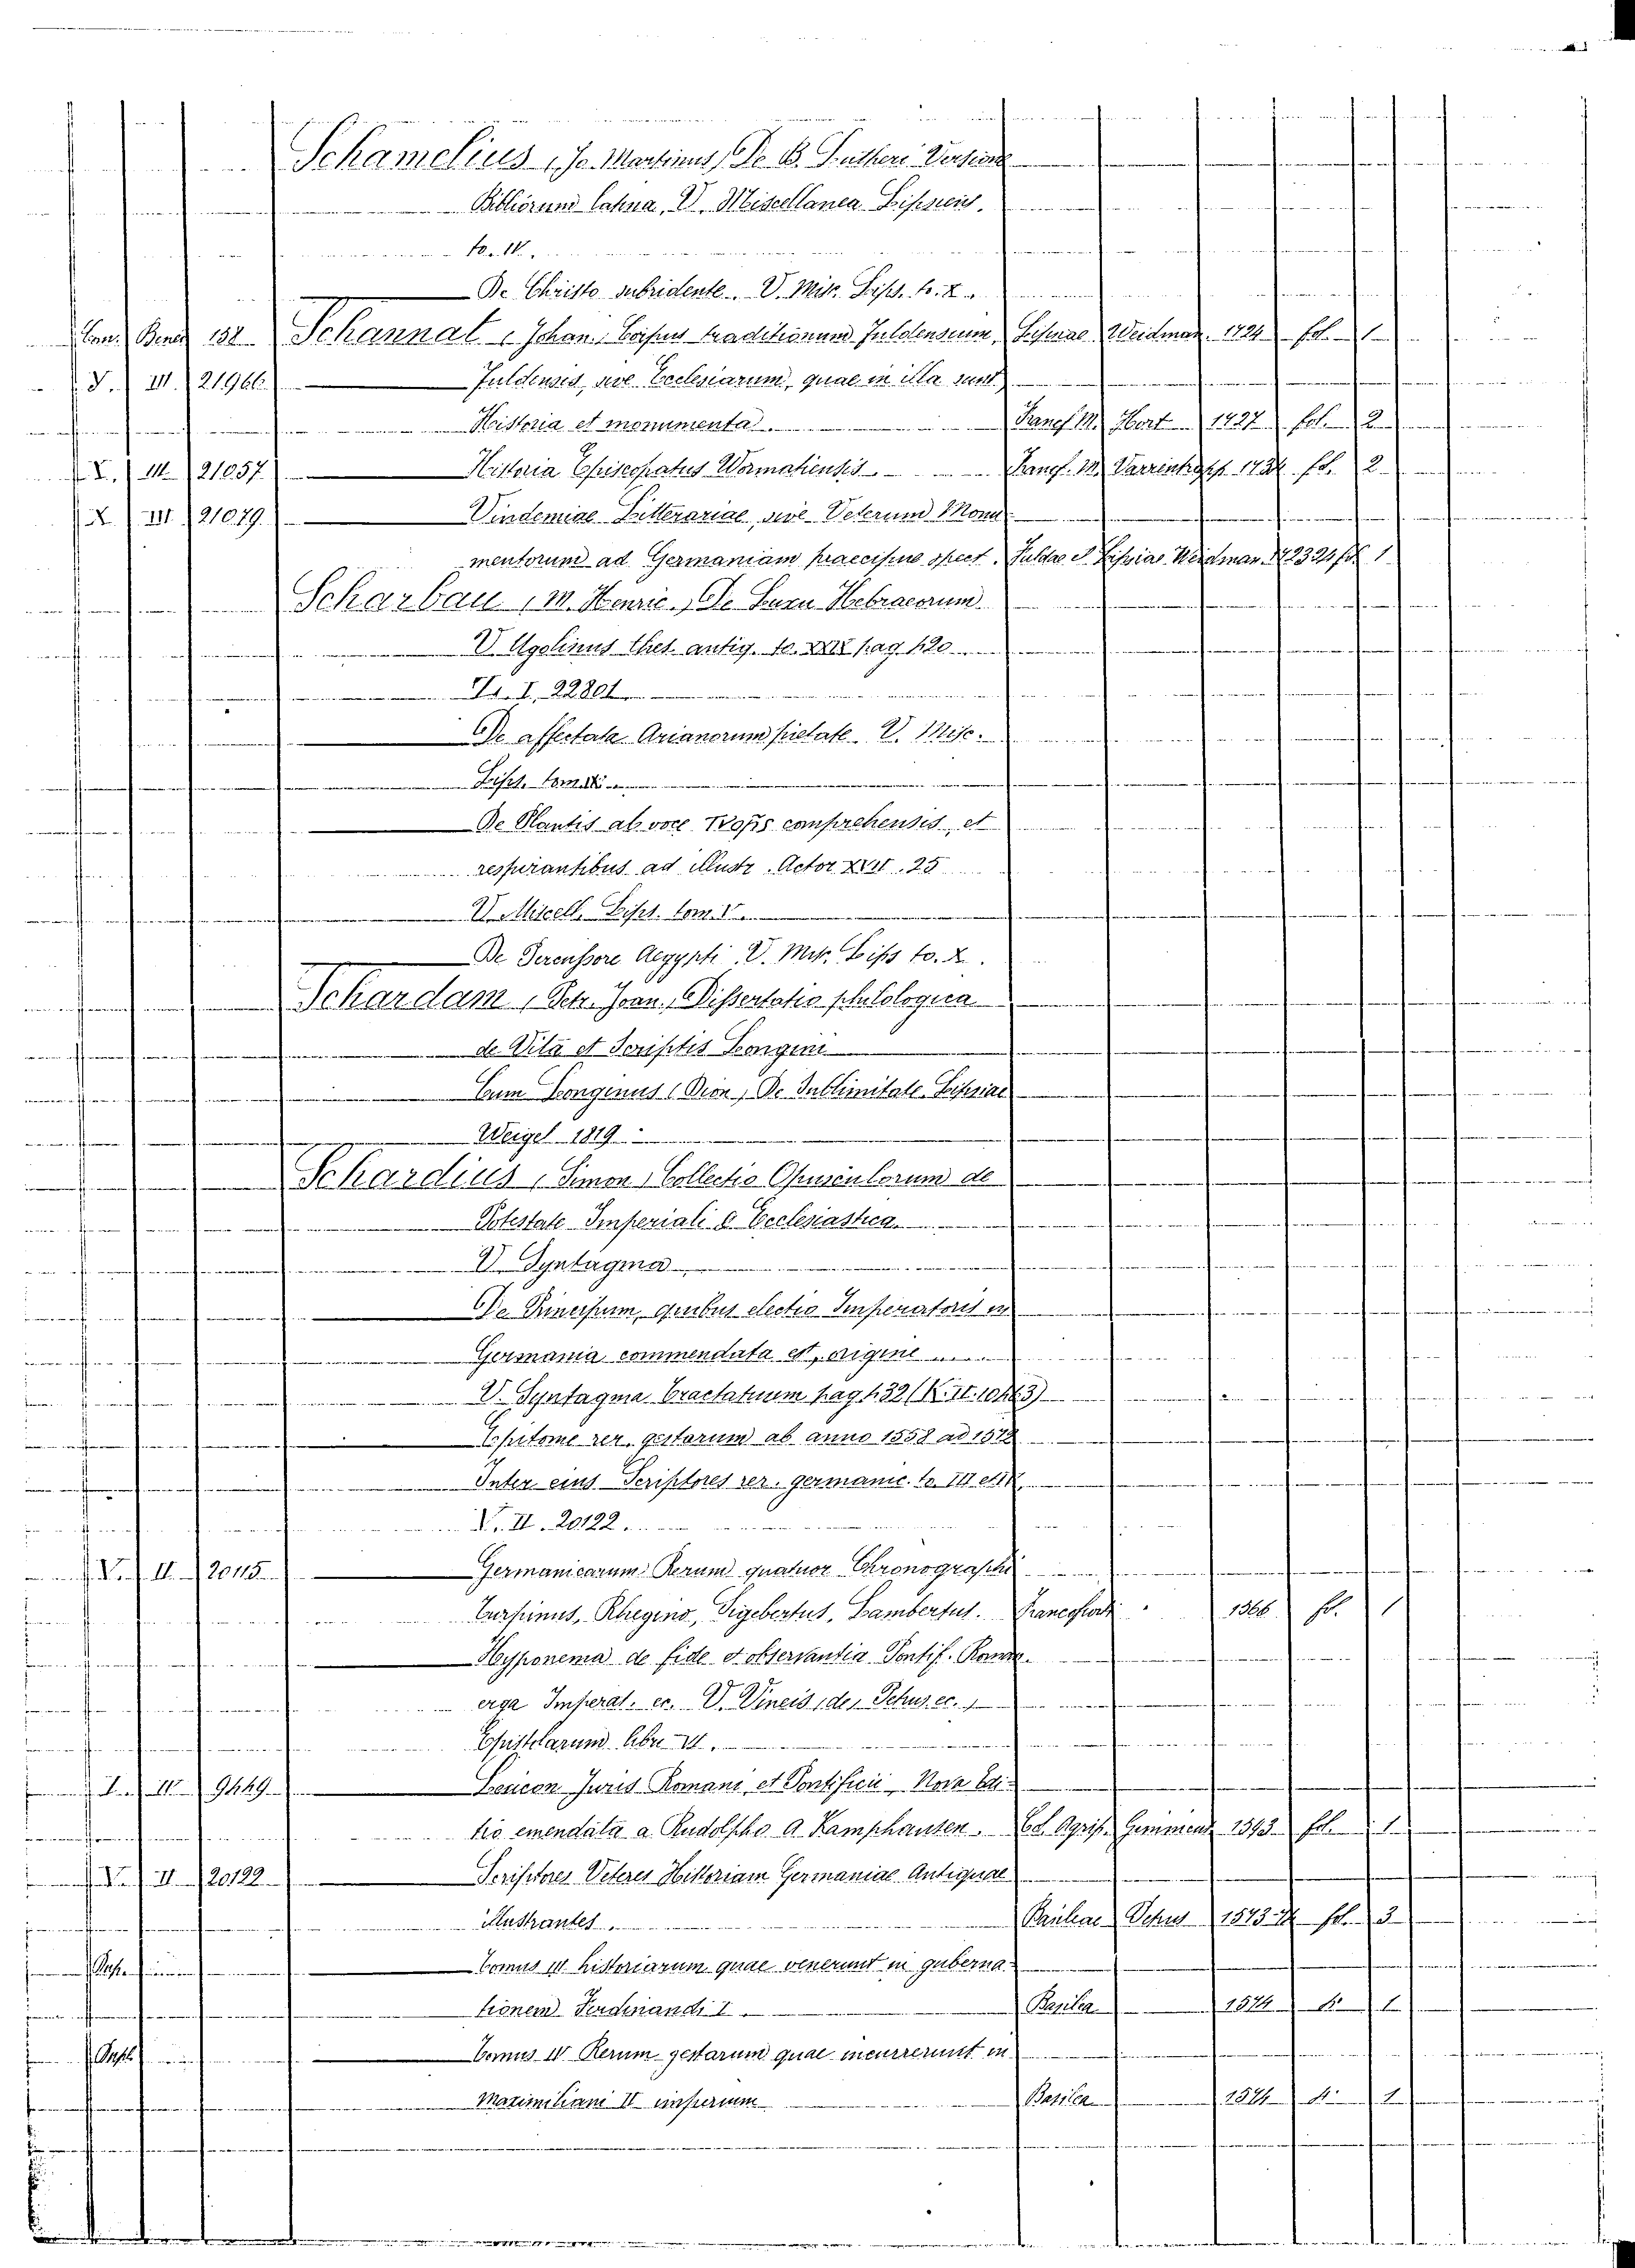 Schamelius, Jo. Martinus, De B. Lutheri Versione
Bibliorum Cahna, V. Miscellanea Lipsiens.
to. IV.
De Christo subridente. V. Misc. Lips. to. X.
Cann. Bened 152 Schannat, Johan. Corpus traditionum Fuldensium, Lipsiae Weidman. 1724 fol. 1
V. III. 21966 Fuldensis, sive Ecclesiarum, quae in illa sunt
Historia et monumenta. Francf. M. Hort 1727 fol. 2
X. III. 21057 Historia Episcopatus Wormatiensis Francf. M. Varrentrapp 1734 fol. 2
X. III. 21079 Vindemiae Litterariae, sive Veterum Monu
mentorum ad Germaniam praecipue spect. Fuldae et Lipsiae Weidman. 1723 24 fol. 1
Scharbau, M. Henric., De Luxu Hebraeorum
V. Ugolinus Thes. antiq. to. XXIX pag 120
Tt. I. 22801
De affectata Arianorum pietate V. Misc.
Lips. tom. IX
De Plantis ab voce comprehensis, et
respirantibus ad illustr. Actor XVII. 25
V. Miscell. Lips. tom. V.
De Percussore Aegypti. V. Misc. Lips to. X.
Schardam, Petr. Joan., Dissertatio philologica
de Vita et Scriptis Longini
Cum Longinus (Dion, De Sublimitate. Lipsiae
Weigel 1819
Schardius, Simon, Collectio Opusculorum de
Potestate Imperiali & Ecclesiastica
V. Syntagma
De Principum, quibus electio Imperatoris in
Germania commendata est, origine
V. Syntagma Tractatuum pag 132 (K. II. 10463)
Epitome rer. gestarum ab anno 1558 ad 1572
Inter eius Scriptores rer. germanic. to. III et IV
V. II. 20122.
V. II. 20115 Germanicarum Rerum quatuor Chronographi
Turpinus, Rhegino, Sigebertus, Lambertus. Francofurti 1566 fol. 1
Hyponema de fide et observantia Pontif. Roman.
erga Imperat. ec. V. Vineis, de, Petrus, ec.
Epistolarum libri VI.
I. IV. 9449 Lexicon Juris Romani et Pontificii Nova Edi-
tio emendata a Rudolpho A Kamphausen. Col. Agrip. Gymnic 1593 fol. 1
V. II 20122 Scriptores Veteres Historiam Germaniae Antiquae
illustrantes. Basileae Petrus 1573-74 fol. 3
Tomus III historiarum quae venerunt in guberna-
tionem Ferdinandi I. Basilea 1574 1
Tomus IV Rerum gestarum quae incurrerunt in
Maximiliani II imperium Basilea 1574 1